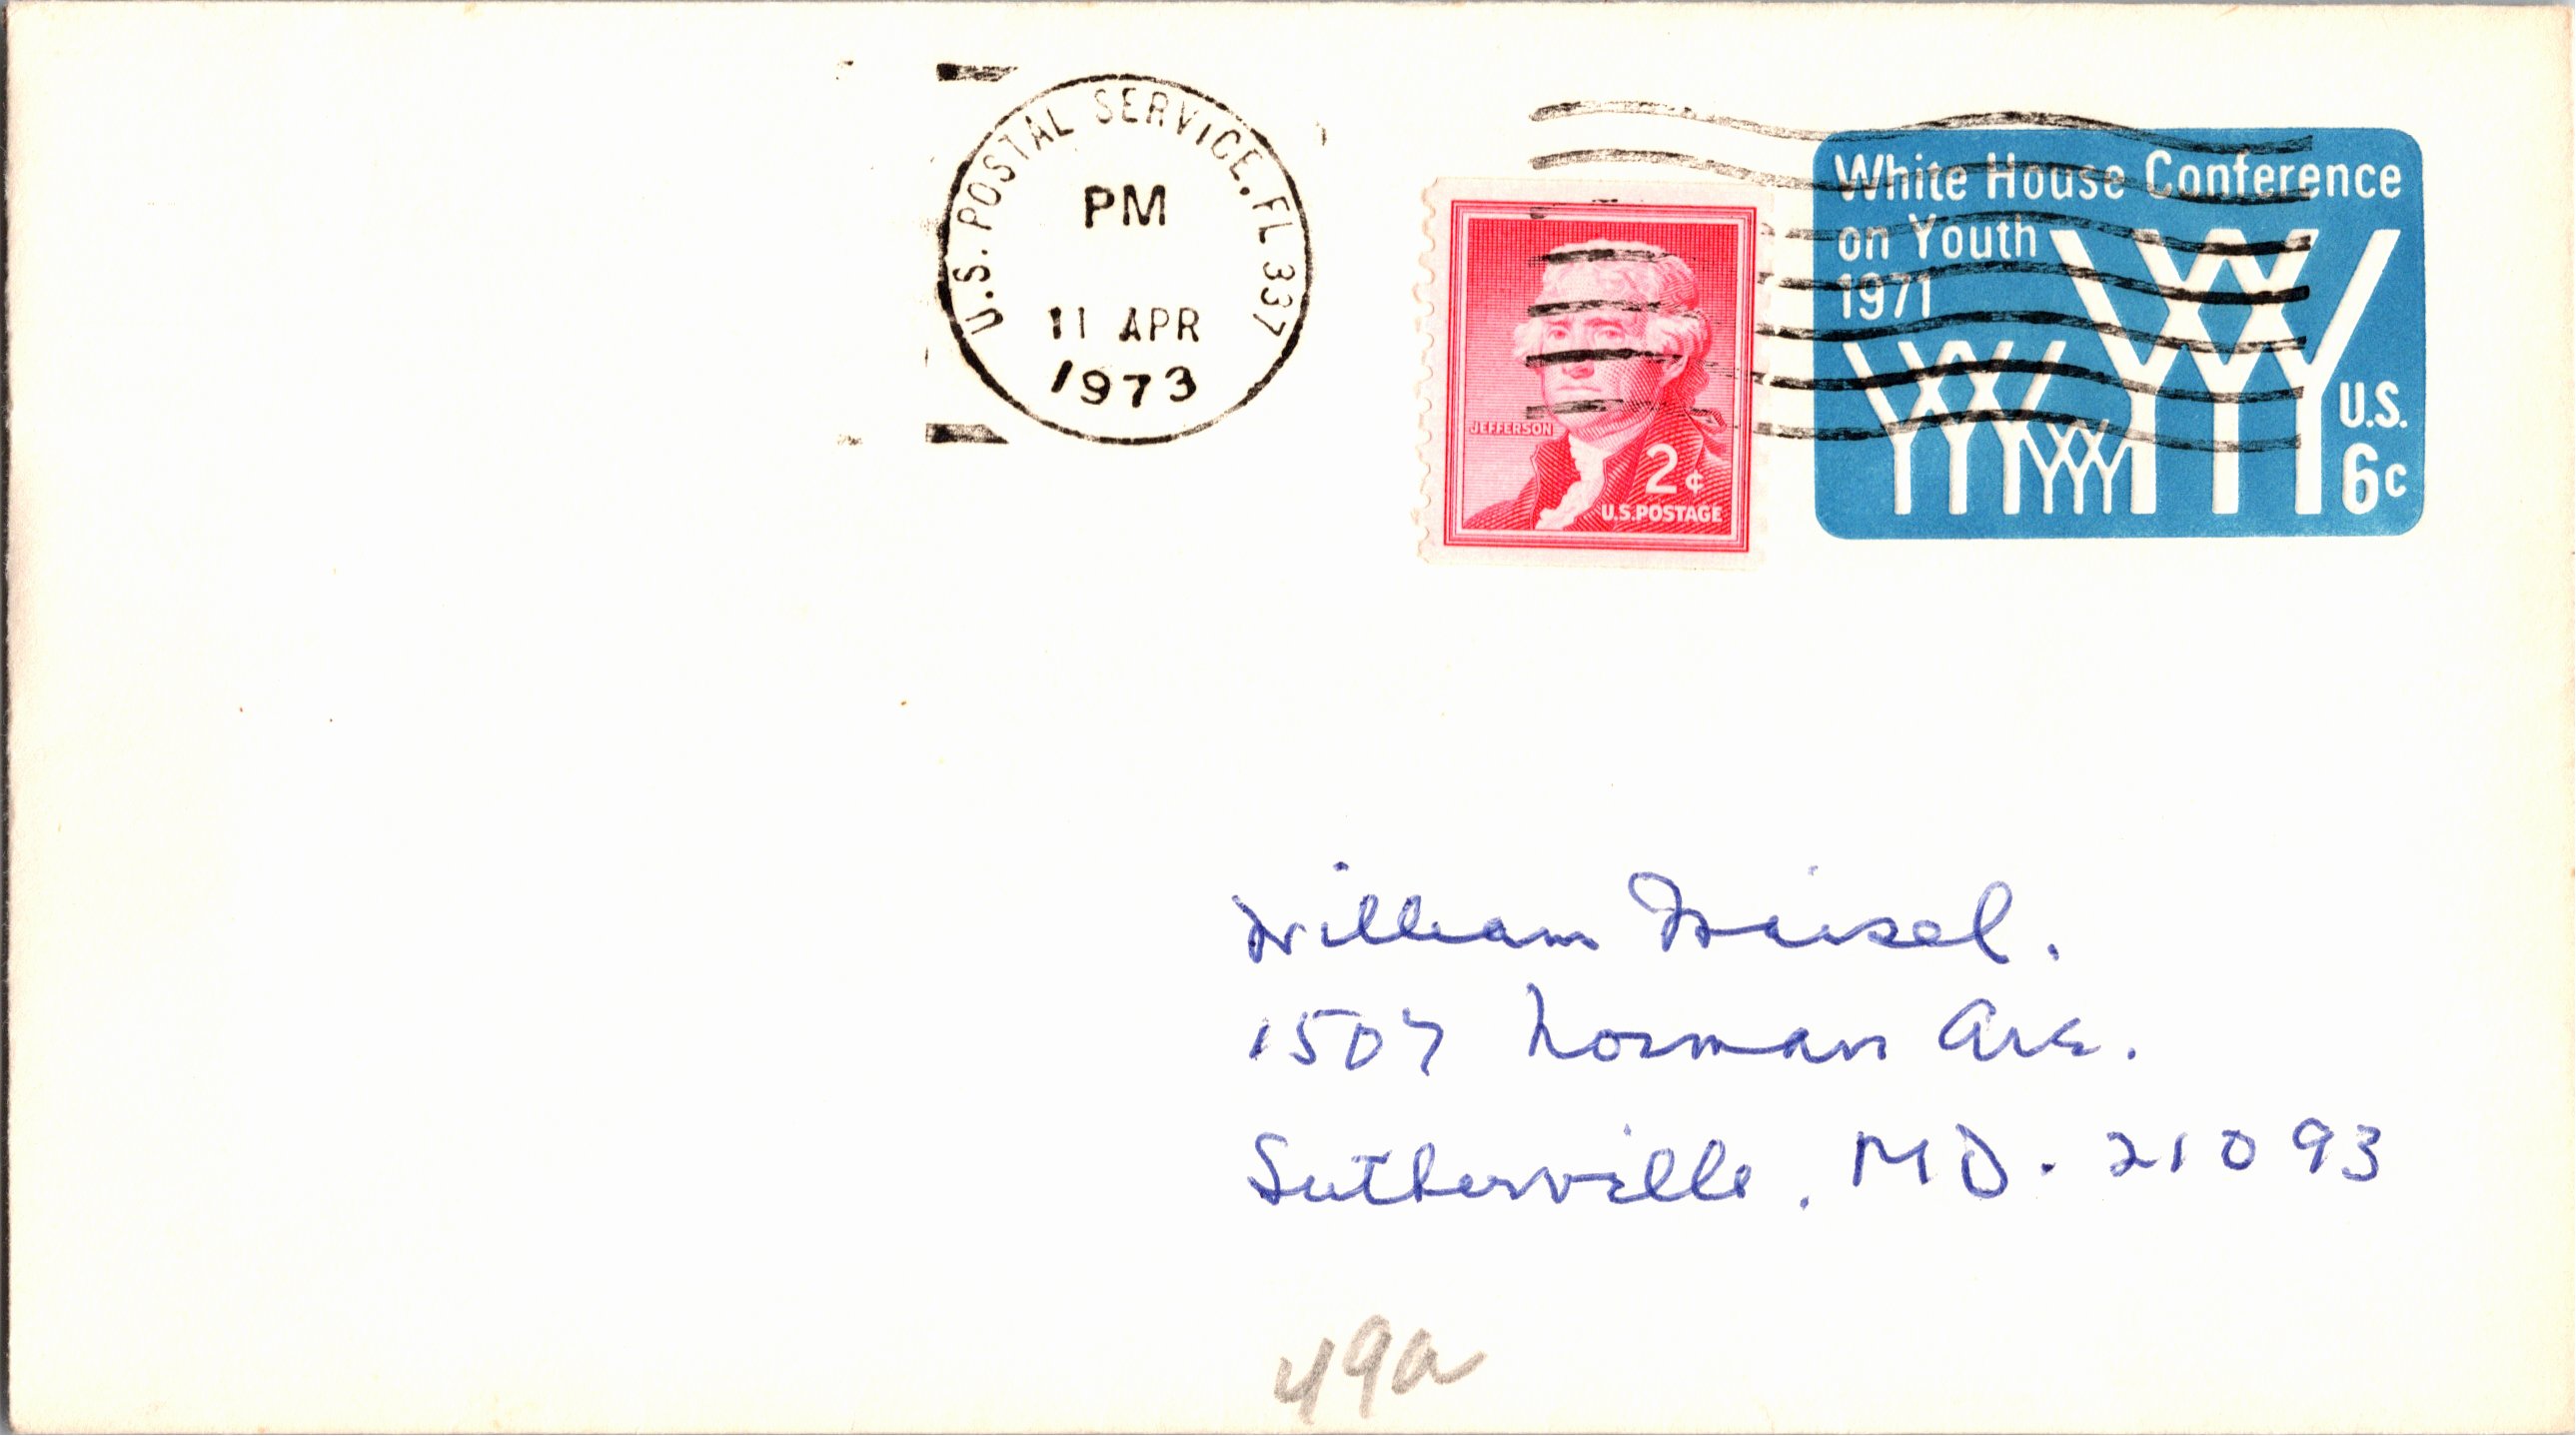 U.S. POSTAL SERVICE, FL 337
PM
11 APR
1973
JEFFERSON
2¢
U.S. POSTAGE
White House Conference
on Youth
1971
U.S.
6c
William
1507 Norman Ave.
Sutherville, MD. 21093
49a